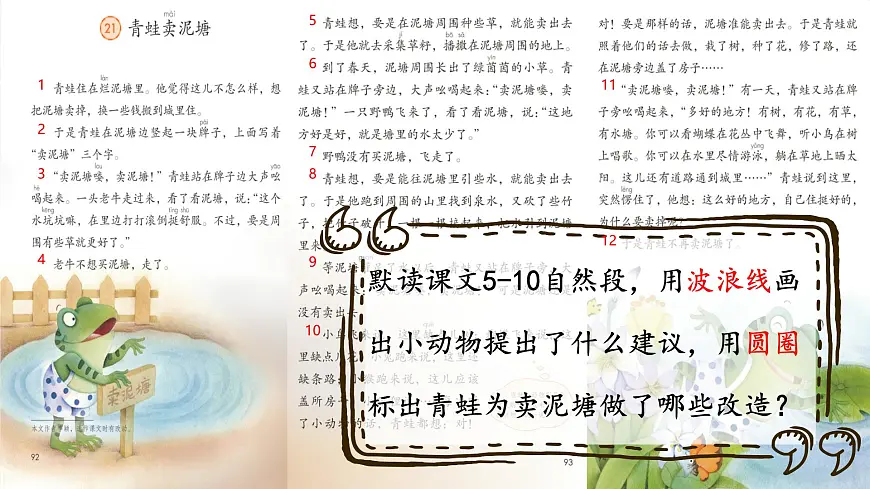 mài
21 青蛙卖泥塘
làn
1 青蛙住在烂泥塘里。他觉得这儿不怎么样，想
把泥塘卖掉，换一些钱搬到城里住。
pái
2 于是青蛙在泥塘边竖起一块牌子，上面写着
“卖泥塘”三个字。
lou yāo
3 “卖泥塘喽，卖泥塘！”青蛙站在牌子边大声吆
hè
喝起来。一头老牛走过来，看了看泥塘，说：“这个
kēng tǐng shū
水坑坑嘛，在里边打打滚倒挺舒服。不过，要是周
围有些草就更好了。”
4 老牛不想买泥塘，走了。
卖泥塘
92
5 青蛙想，要是在泥塘周围种些草，就能卖出去
jí bō sǎ
了。于是他就去采集草籽，播撒在泥塘周围的地上。
yīn
6 到了春天，泥塘周围长出了绿茵茵的小草。青
蛙又站在牌子旁边，大声吆喝起来：“卖泥塘喽，卖
泥塘！”一只野鸭飞来了，看了看泥塘，说：“这地
方好是好，就是塘里的水太少了。”
7 野鸭没有买泥塘，飞走了。
8 青蛙想，要是能往泥塘里引些水，就能卖出去
了。于是他跑到周围的山里找到泉水，又砍了些竹
9 等泥塘
声吆喝起来
没有卖出去
10 小鸟飞来说
里缺点儿
缺条路
盖所房子
了小动物的话，青蛙都想：对！
93
对！要是那样的话，泥塘准能卖出去。于是青蛙就
照着他们的话去做，栽了树，种了花，修了路，还
在泥塘旁边盖了房子……
11 “卖泥塘喽，卖泥塘！”有一天，青蛙又站在牌
子旁吆喝起来，“多好的地方！有树，有花，有草，
有水塘。你可以看蝴蝶在花丛中飞舞，听小鸟在树
yǒng
上唱歌。你可以在水里尽情游泳，躺在草地上晒太
阳。这儿还有道路通到城里……”青蛙说到这里，
lèng
突然愣住了，他想：这么好的地方，自己住挺好的，
为什么要卖掉呢？
12 于是青蛙不再卖泥塘了。
默读课文5-10自然段，用波浪线画
出小动物提出了什么建议，用圆圈
标出青蛙为卖泥塘做了哪些改造？